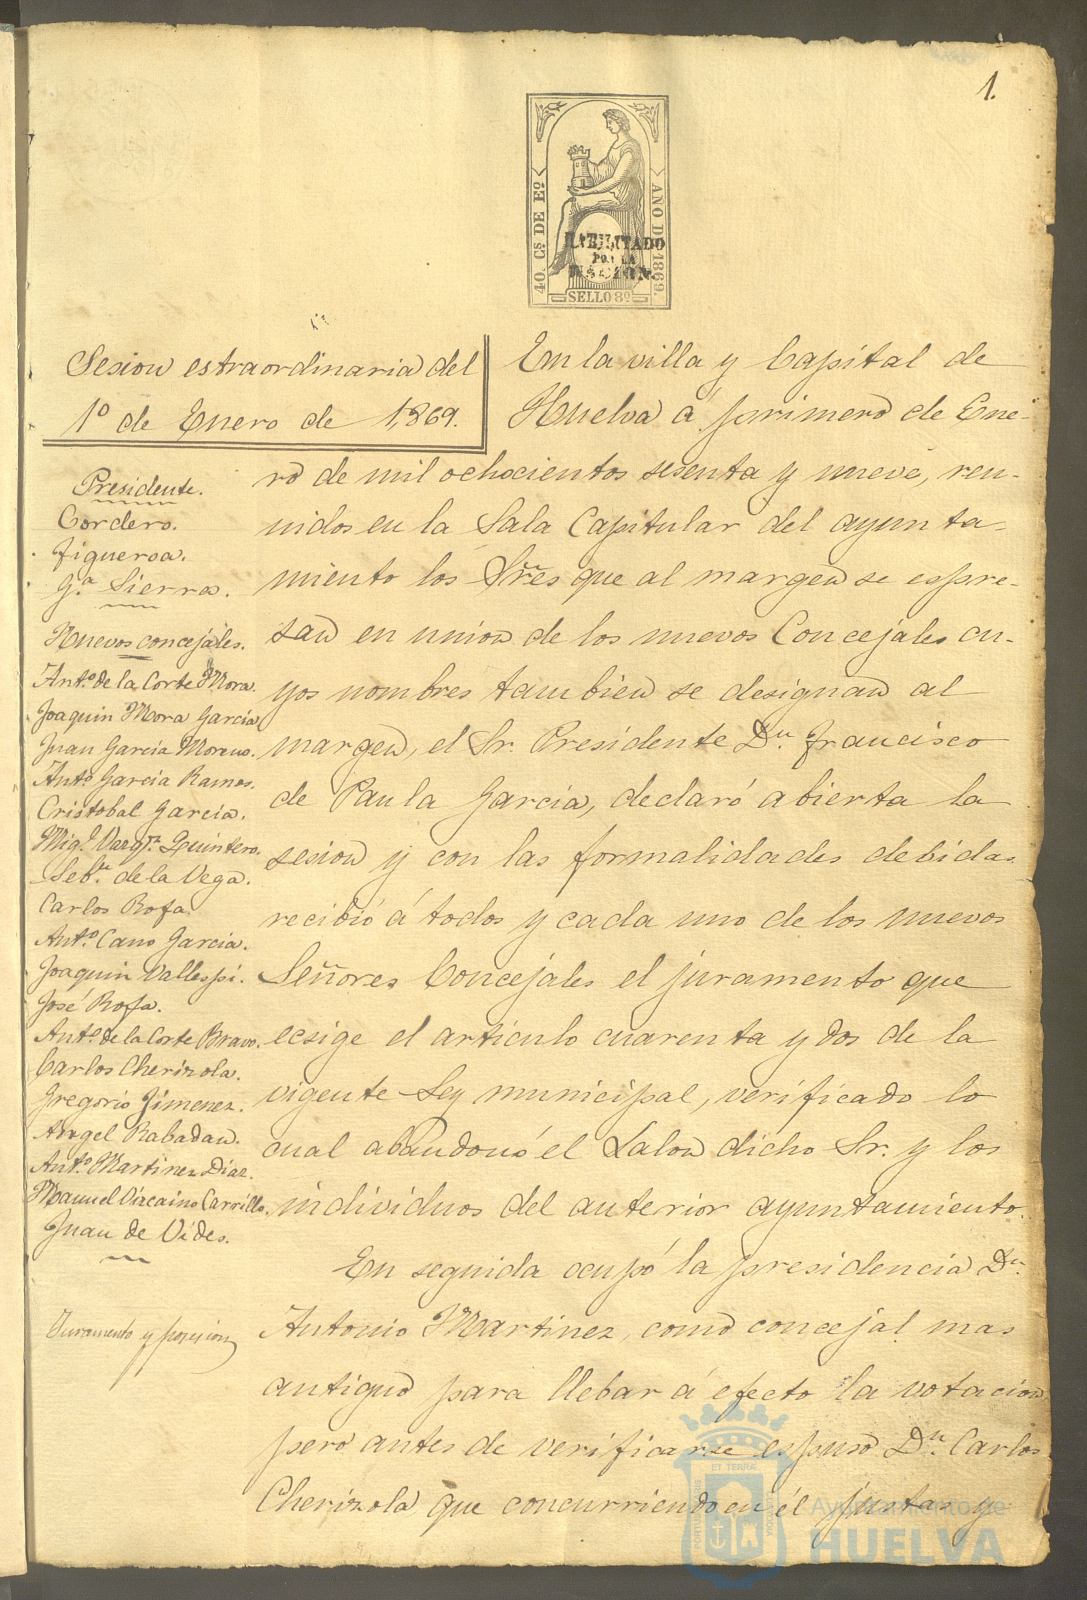 1.
40. Cs DE Eº
AÑO DE 1869.
HABILITADO
POR LA
NACION.
SELLO 8º
Sesion estraordinaria del
1º de Enero de 1,869.
Presidente.
Cordero.
Figueroa.
Gª Sierra.
Nuevos concejáles.
Antº de la Corte Mora.
Joaquin Mora Garcia
Juan Garcia Moreno.
Antº Garcia Ramos.
Cristobal Garcia.
Migl. Vazqz. Quintero.
Sebn. de la Vega.
Carlos Rofa.
Antº Cano Garcia.
Joaquin Vallespi.
José Rofa.
Antº de la Corte Bravo.
Carlos Cherizola.
Gregorio Jimenez.
Angel Rabadan.
Antº Martinez Diaz.
Manuel Vizcaino Carrillo.
Juan de Vides.
Juramento y posesion
En la villa y Capital de
Huelva á primero de Ene-
ro de mil ochocientos sesenta y nueve, reu-
nidos en la Sala Capitular del ayunta-
miento los Sres que al margen se espre-
san en union de los nuevos Concejales cu-
yos nombres tambien se designan al
margen, el Sr. Presidente Dn. Francisco
de Paula Garcia, declaró abierta la
sesion y con las formalidades debidas
recibió á todos y cada uno de los nuevos
Señores Concejales el juramento que
ecsige el articulo cuarenta y dos de la
vigente Ley municipal, verificado lo
cual abandonó el Salon dicho Sr. y los
individuos del anterior ayuntamiento.
En seguida ocupó la presidencia Dn.
Antonio Martinez, como concejal mas
antiguo para llebar á efecto la votacion
pero antes de verificarse espuso Dn. Carlos
Cherizola que concurriendo en él justas y
Ayuntamiento de
HUELVA